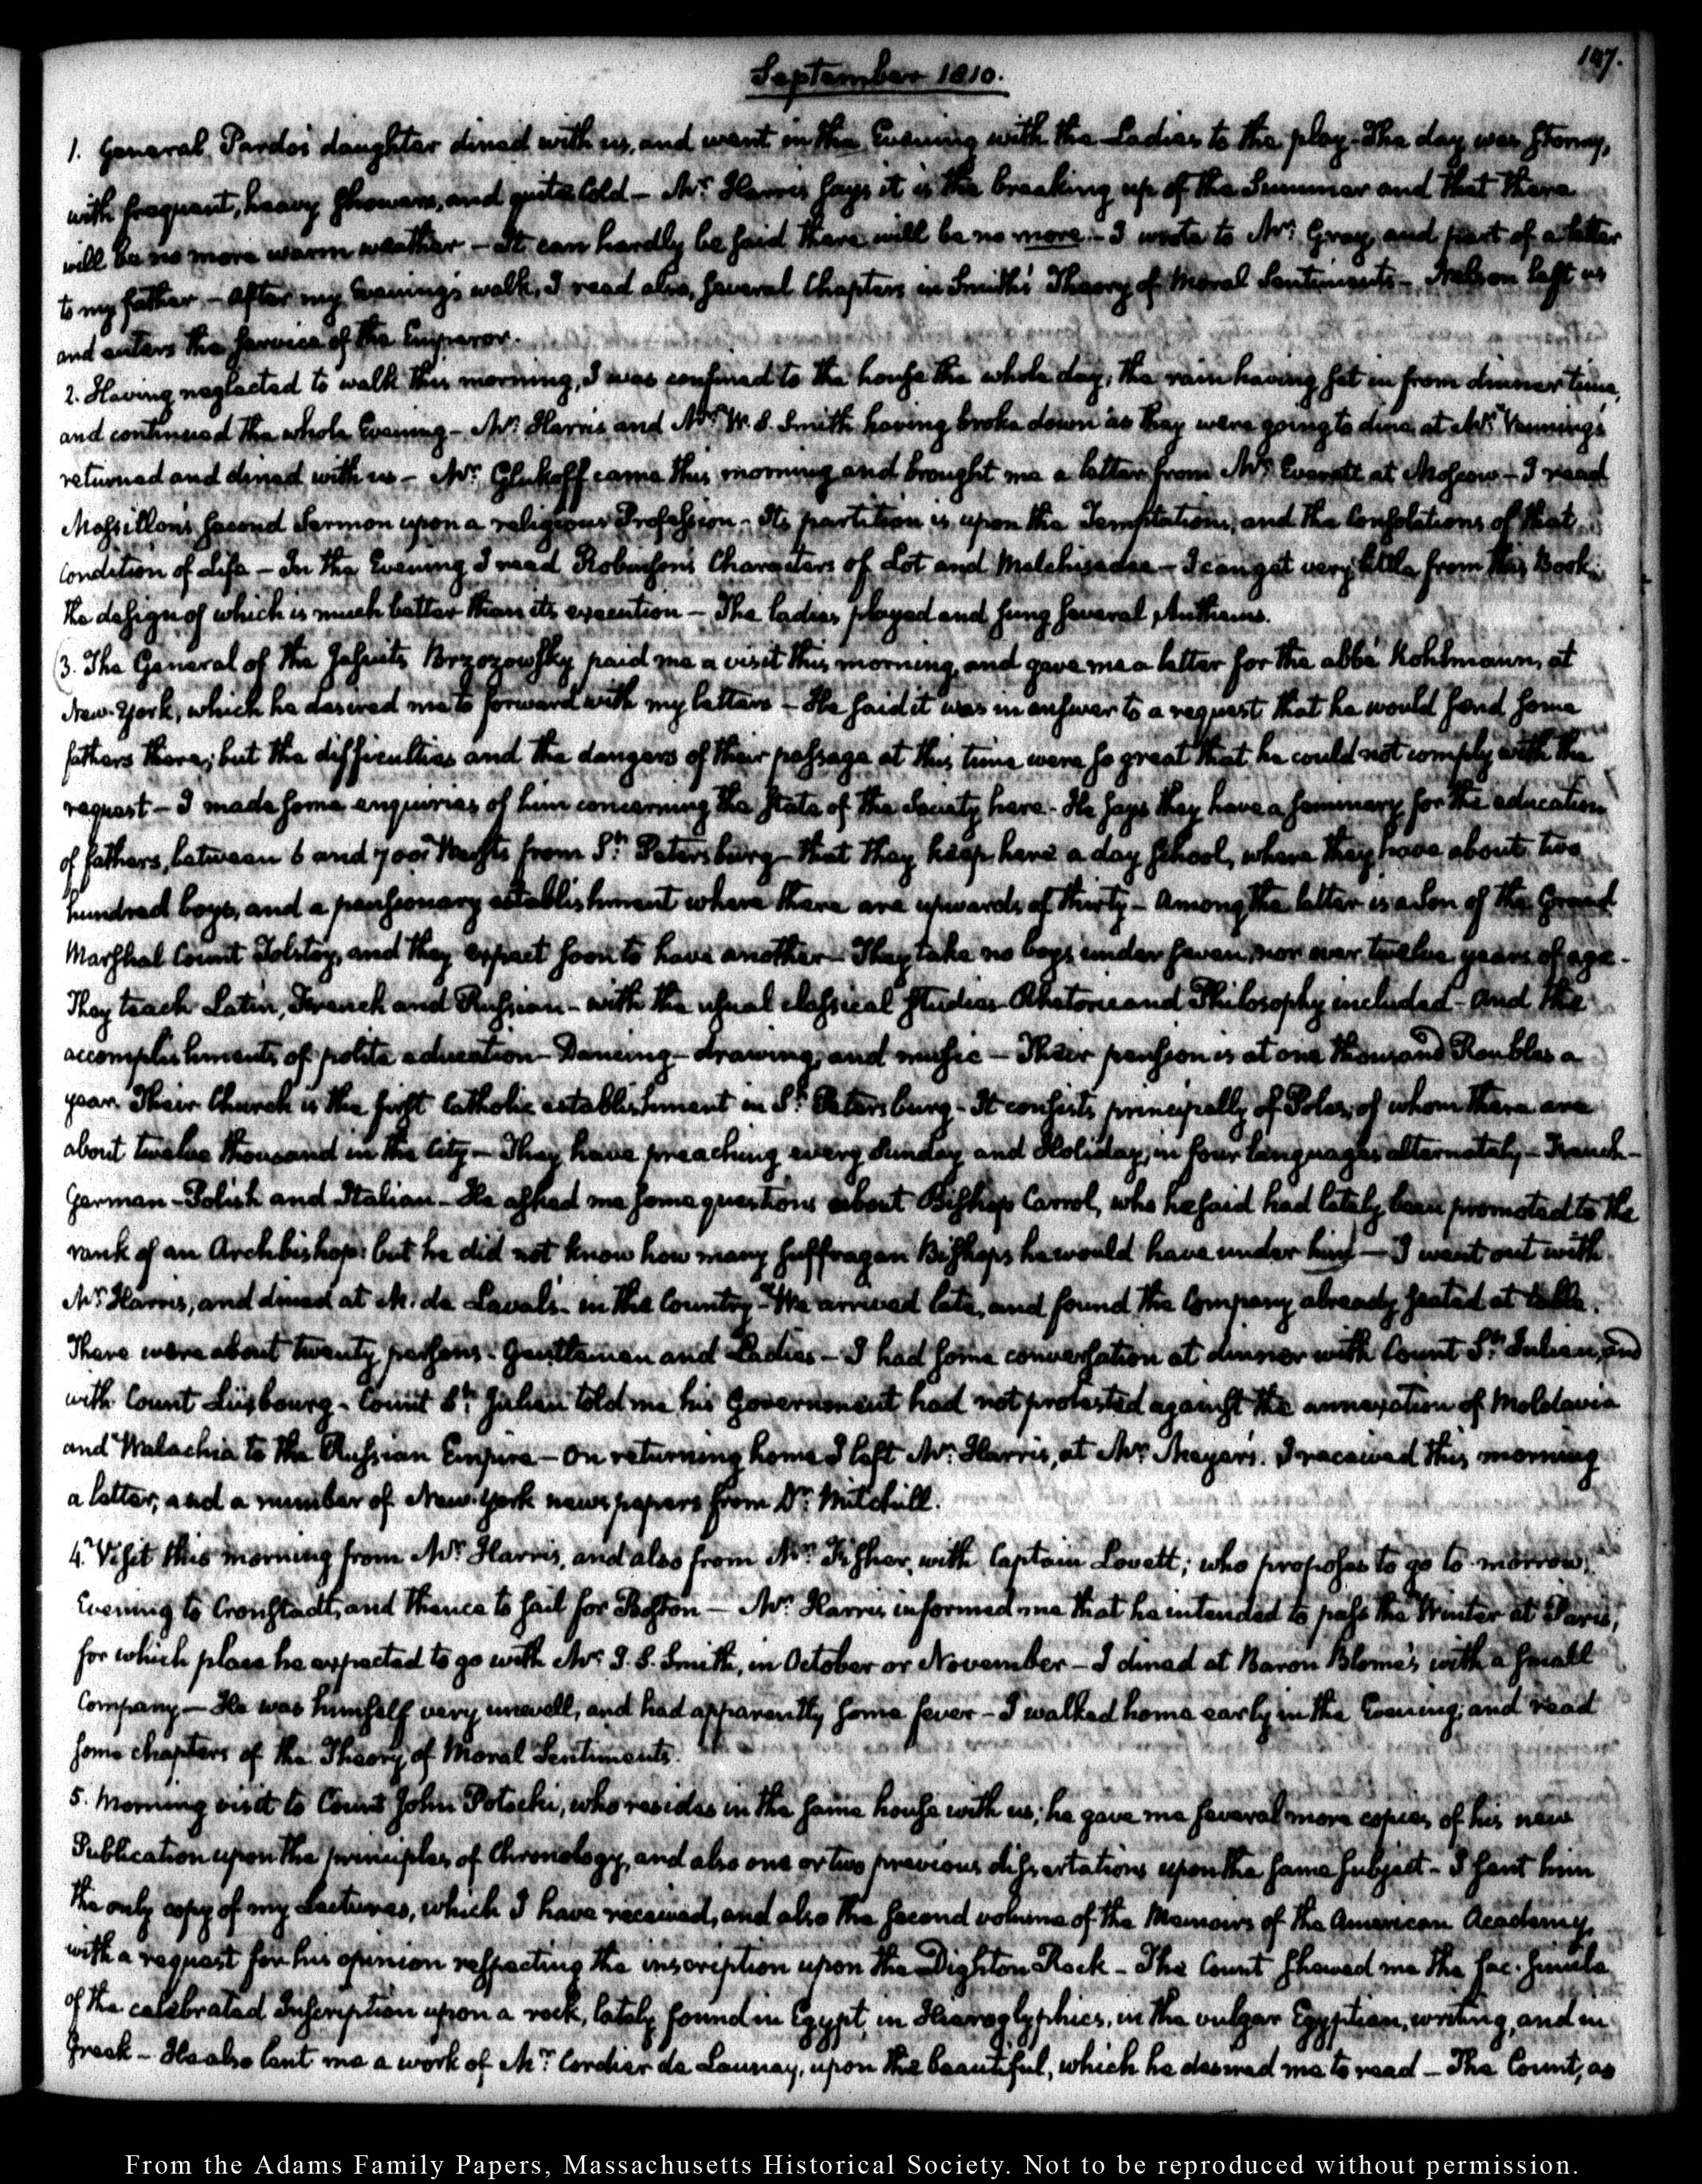 147.
September 1810.
1. General Pardo's daughter dined with us, and went in the Evening with the Ladies to the play. The day was stormy,
with frequent, heavy showers, and quite cold — Mr. Harris says it is the breaking up of the Summer and that there
will be no more warm weather. — It can hardly be said there will be no more. — I wrote to Mr. Gray, and part of a letter
to my father. — After my Evening's walk, I read also, several Chapters in Smith's Theory of Moral Sentiments — Nelson left us
and enters the service of the Emperor.
2. Having neglected to walk this morning, I was confined to the house the whole day; the rain having set in from dinner time,
and continued the whole Evening — Mr. Harris and Mr. W. S. Smith having broke down as they were going to dine at Mr. Venning's
returned and dined with us — Mr. Glukoff came this morning and brought me a letter from Mr. Everett at Moscow — I read
Massillon's second Sermon upon a religious Profession — Its partition is upon the Temptations, and the Consolations of that
condition of Life — In the Evening I read Robinson's Characters of Lot and Melchisedec — I can get very little from this Book;
the design of which is much better than its execution — The ladies played and sung several Anthems.
3. The General of the Jesuits Brzozowsky paid me a visit this morning, and gave me a letter for the abbé Kohlmann, at
New-York, which he desired me to forward with my letters — He said it was in answer to a request that he would send some
fathers there; but the difficulties and the dangers of their passage at this time were so great that he could not comply with the
request — I made some enquiries of him concerning the state of the Society here. He says they have a seminary for the education
of fathers, between 6 and 700 Wersts from St. Petersburg — that they keep here a day school, where they have about two
hundred boys, and a pensionary establishment where there are upwards of thirty — Among the latter is a Son of the Grand
Marshal Count Tolstoy, and they expect soon to have another — They take no boys under seven, nor over twelve years of age.
They teach Latin, French and Russian — with the usual classical studies — Rhetoric and Philosophy included — and the
accomplishments of polite education — Dancing — drawing, and music — Their pension is at one thousand Roubles a
year. Their Church is the first Catholic establishment in St. Petersburg — It consists principally of Poles, of whom there are
about twelve thousand in the City — They have preaching every Sunday and Holiday, in four languages alternately — French —
German — Polish and Italian — He asked me some questions about Bishop Carrol, who he said had lately been promoted to the
rank of an Archbishop: but he did not know how many suffragan Bishops he would have under him — I went out with
Mr. Harris, and dined at M. de Laval's in the Country — We arrived late, and found the Company already seated at table.
There were about twenty persons — Gentlemen and Ladies — I had some conversation at dinner with Count St. Julien, and
with Count Luxbourg — Count St. Julien told me his Government had not protested against the annexation of Moldavia
and Walachia to the Russian Empire — On returning home I left Mr. Harris, at Mr. Meyer's. I received this morning
a letter, and a number of New-York newspapers from Dr. Mitchill.
4. Visit this morning from Mr. Harris, and also from Mr. Fisher, with Captain Lovett; who proposes to go to-morrow
Evening to Cronstadt, and thence to sail for Boston — Mr. Harris informed me that he intended to pass the Winter at Paris,
for which place he expected to go with Mr. J. S. Smith, in October or November — I dined at Baron Blome's with a small
Company — He was himself very unwell, and had apparently some fever — I walked home early in the Evening; and read
some chapters of the Theory of Moral Sentiments.
5. Morning visit to Count John Potocki, who resides in the same house with us; he gave me several more copies of his new
Publication upon the principles of Chronology, and also one or two previous dissertations upon the same subject — I sent him
the only copy of my Lectures, which I have received, and also the second volume of the Memoirs of the American Academy,
with a request for his opinion respecting the inscription upon the Dighton Rock — The Count shewed me the fac-simile
of the celebrated Inscription upon a rock, lately found in Egypt, in Hieroglyphics, in the vulgar Egyptian, writing, and in
Greek — He also lent me a work of Mr. Cordier de Launay, upon the beautiful, which he desired me to read — The Count, as
From the Adams Family Papers, Massachusetts Historical Society. Not to be reproduced without permission.